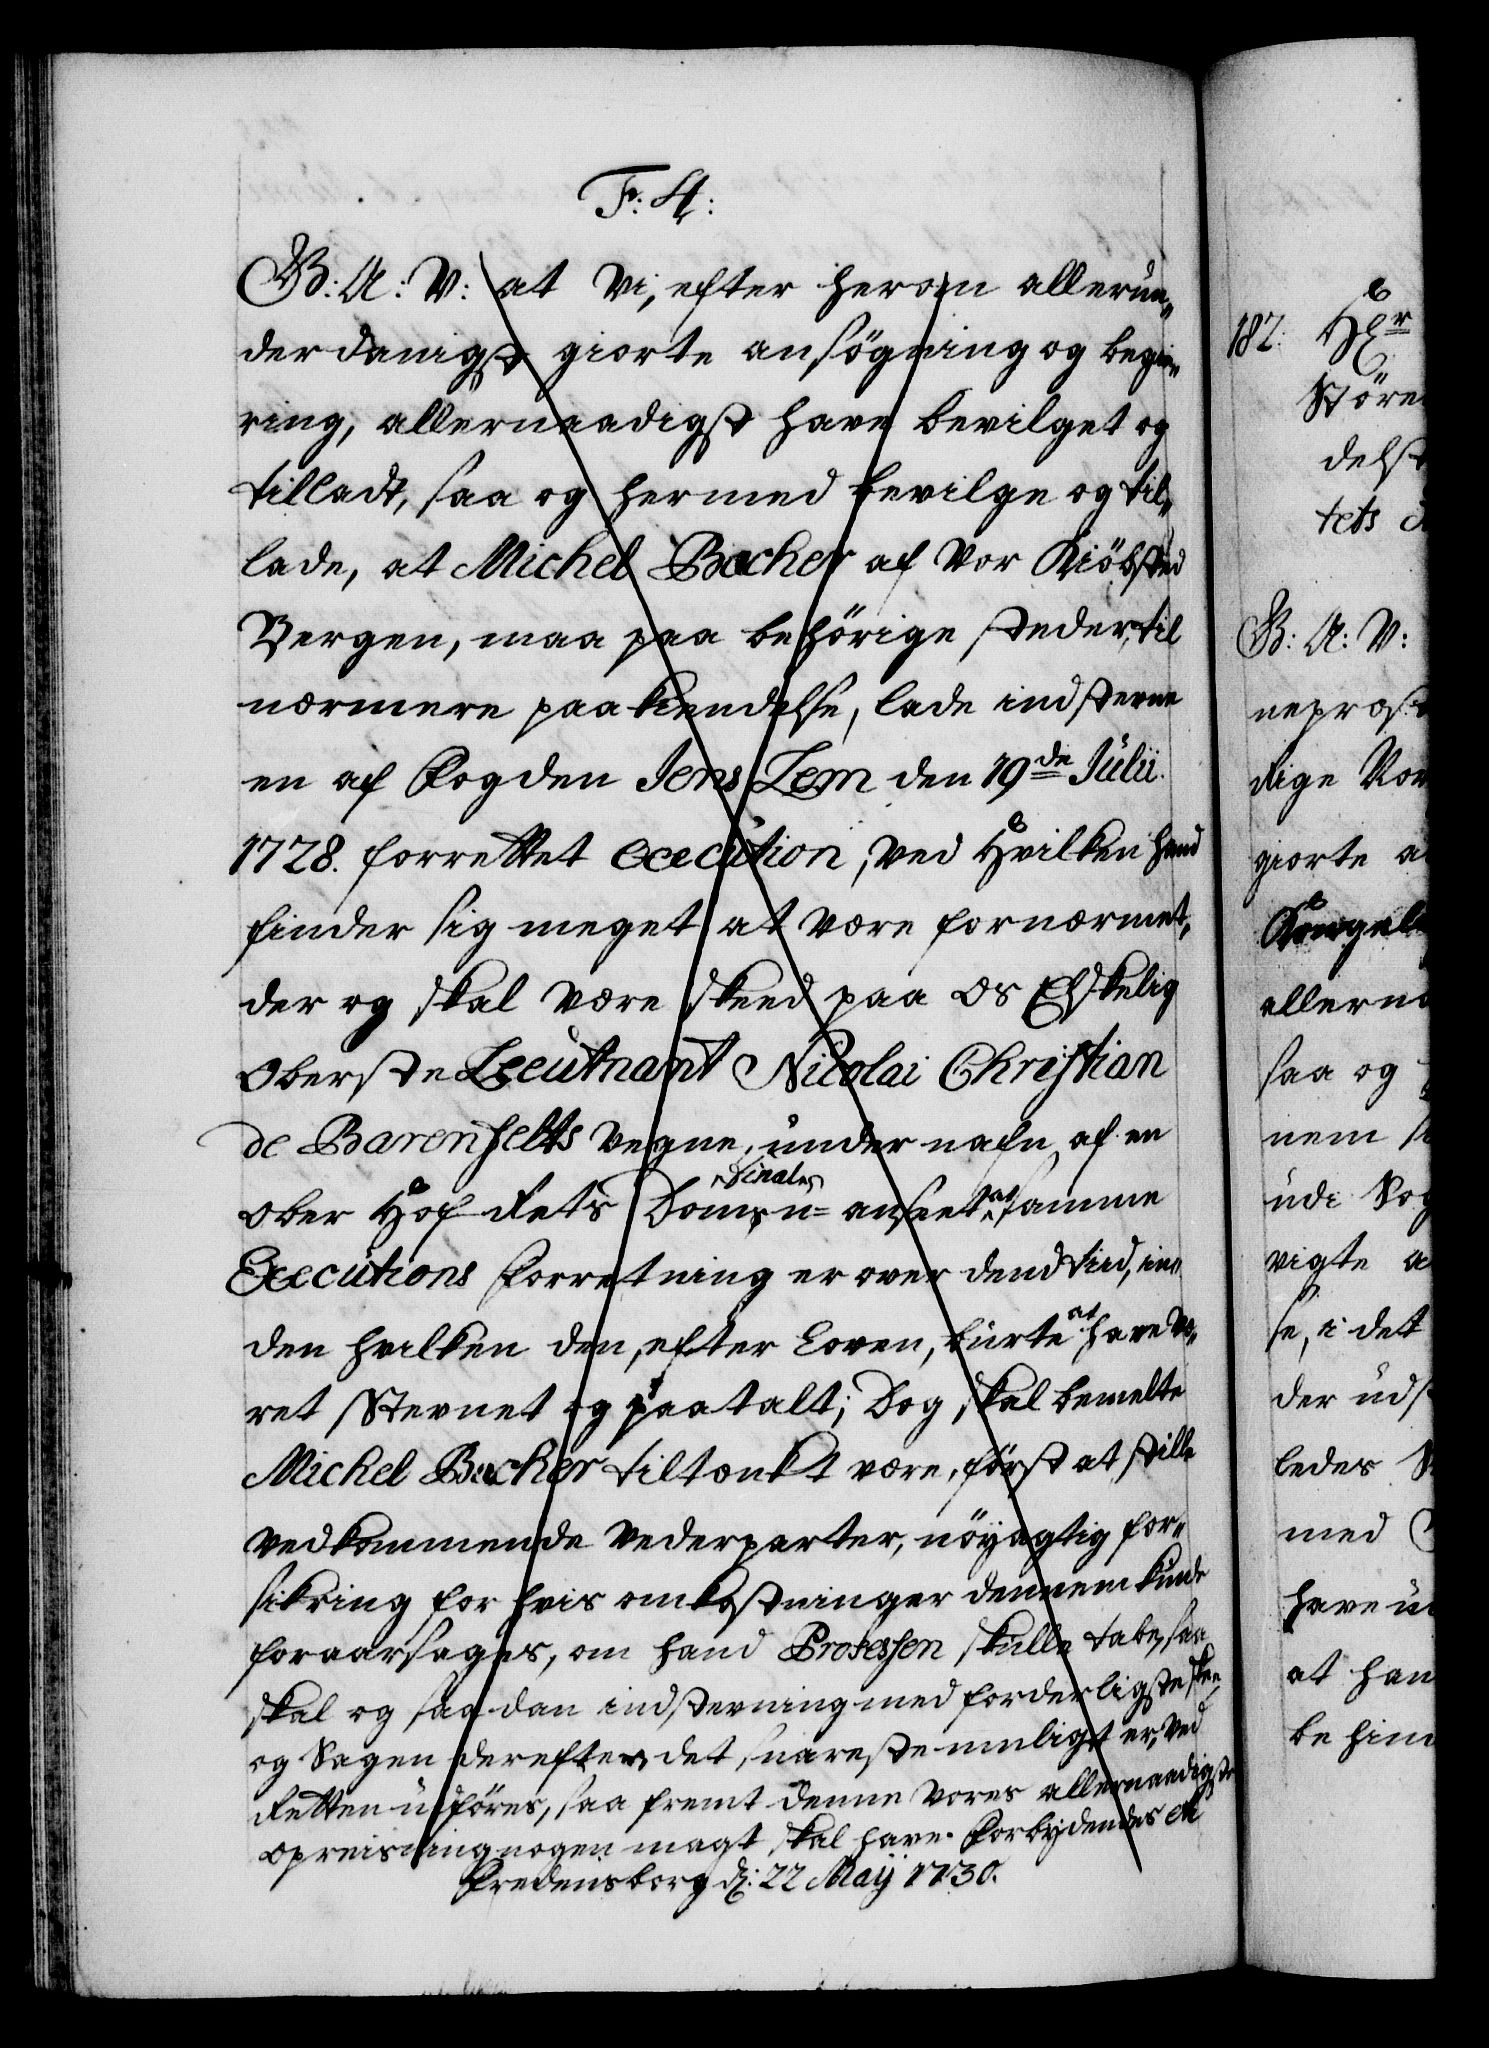 F: 4:
G: A: V: at Vi, efter herom allerun-
derdanigst giorte ansögning og begie-
ring, allernaadigst have bevilget og
tilladt, saa og hermed bevilge og til-
lade, at Michel Bøcher af Vor Kiöbsted
Bergen, maa paa behörige steder, til
nærmere paakiendelse, lade indstevne
en af Fogden Jens Lem den 19de Julii
1728. forrettet execution, ved Hvilken hand
finder sig meget at være fornærmet,
der og skal være skeed paa Os Elskelig
Oberste Lieutnant Nicolai Christian
de Barenfelts Vegne, under nafn af en
Ober Hof Rets Doms finale u-anseet at samme
Executions Forretning er over dend tiid, in-
den hvilken den, efter Loven, burte at have væ-
ret Stevnet og paatalt; Dog skal bemelte
Michel Bøcher tiltænkt være, först at stille
Vedkommende Vederparter, nöyagtig for-
sikring for hvis omkostninger dennem kunde
foraarsages, om hand Processen skulle tabe, saa
skal og saadan indstevning med forderligste skee
og Sagen derefter det snareste muligt er, ved
Retten udföres, saa fremt denne Vores allernaadigste
opreisning nogen magt skal have. Forbydendes etc
Fredensborg d: 22 Maij 1730.
182. Hr
Störe
delst
tets
G: A: V:
neprost
dige Vor
giorte a
allerna
saa og
nem
udi Sog
vigte a
se, i det
der uds
ledes
med
have
at han
be hin